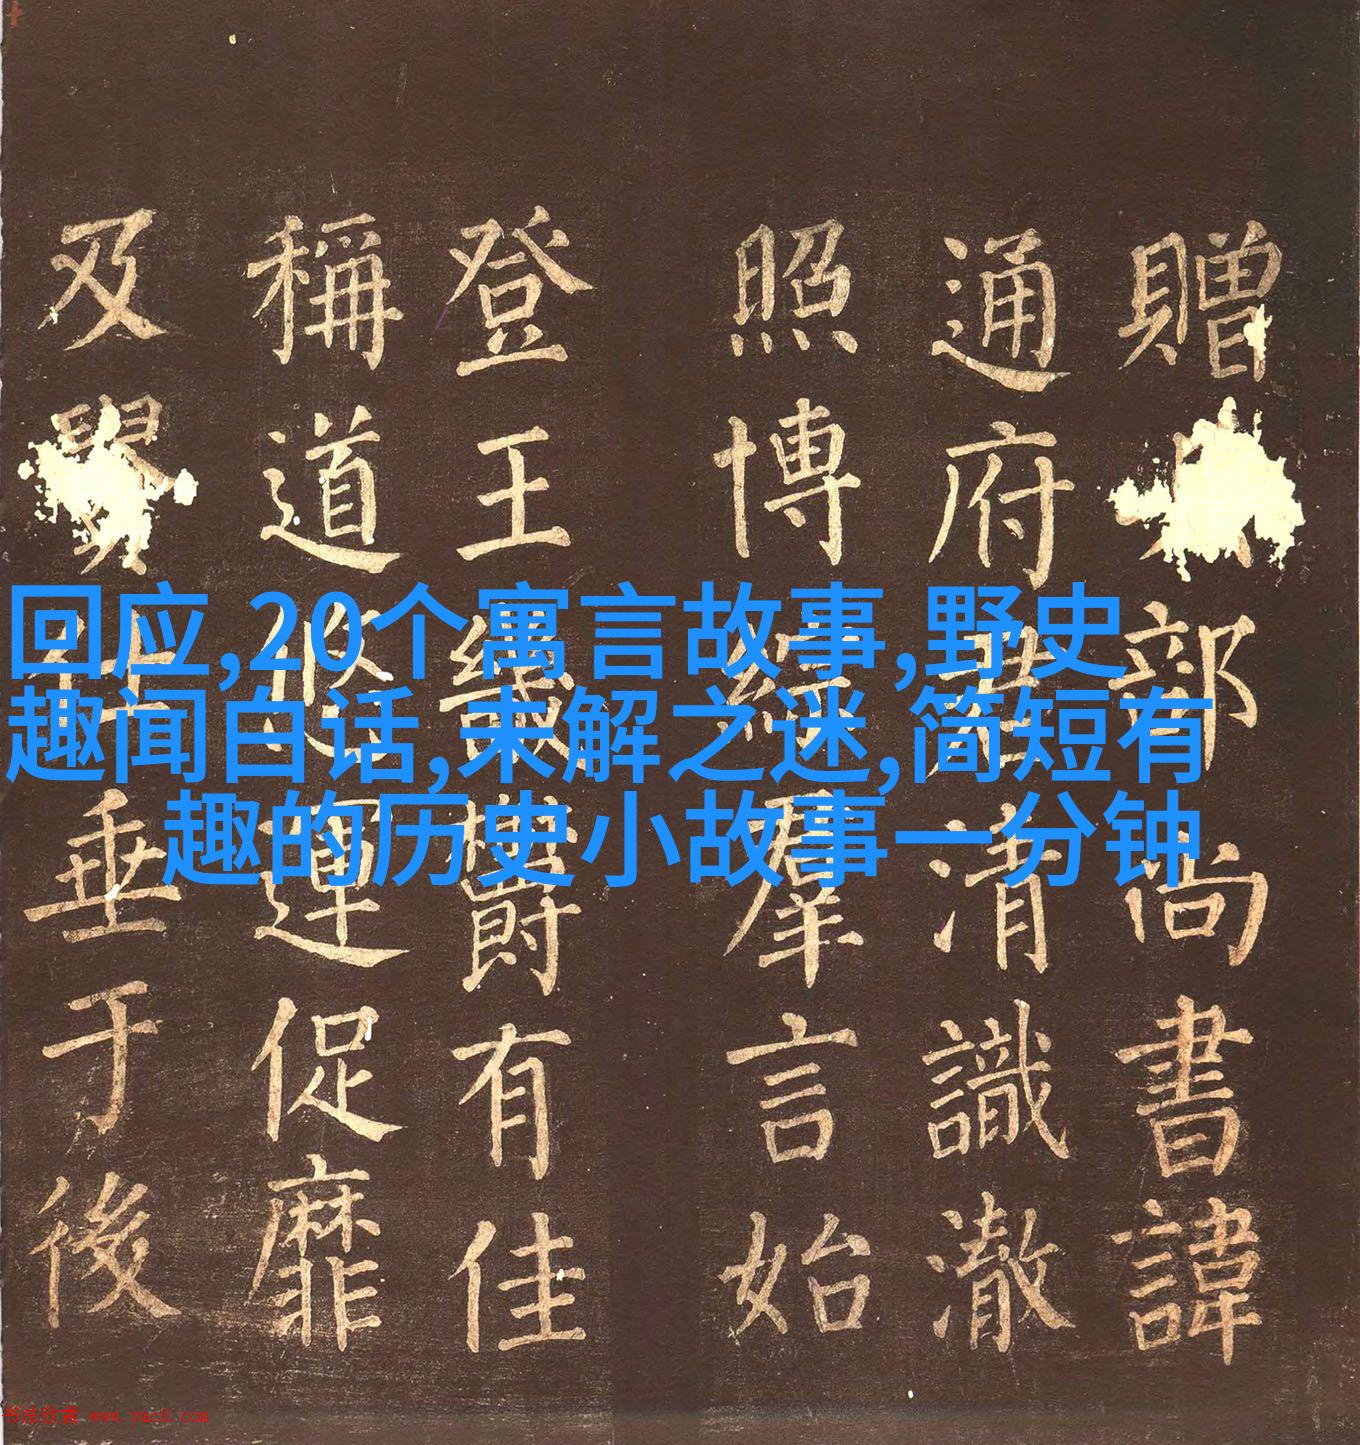 回应,20个寓言故事,野史
趣闻白话,未解之迷,简短有
趣的历史小故事一分钟
贈部尚書諱
通府君清識澈
照博羣言始
登王有佳
稱道悠運促靡
及垂于後
书法欣赏 www.yac8.com